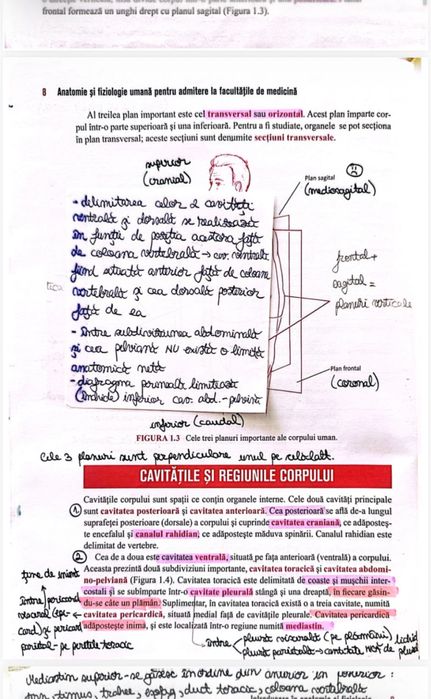 frontal formează un unghi drept cu planul sagital (Figura 1.3).
8 Anatomie și fiziologie umană pentru admitere la facultățile de medicină
Al treilea plan important este cel transversal sau orizontal. Acest plan împarte cor-
pul într-o parte superioară și una inferioară. Pentru a fi studiate, organele se pot secționa
în plan transversal; aceste secțiuni sunt denumite secțiuni transversale.
superior
(cranial)
Plan sagital
(mediosagital)
- delimitarea celor 2 cavități
ventrală și dorsală se realizează
în funcție de poziția acestora față
de coloana vertebrală → cav. ventrală
fiind situată anterior față de coloana
vertebrală și cea dorsală posterior
față de ea
- între subdiviziunea abdominală
și cea pelviană NU există o limită
anatomică netă
- diafragma perineală limitează
(închide) inferior cav. abd.-pelvină
frontal +
sagital =
planuri verticale
Plan frontal
(coronal)
inferior (caudal)
FIGURA 1.3 Cele trei planuri importante ale corpului uman.
Cele 3 planuri sunt perpendiculare unul pe celălalt.
CAVITĂȚILE ȘI REGIUNILE CORPULUI
Cavitățile corpului sunt spații ce conțin organele interne. Cele două cavități principale
① sunt cavitatea posterioară și cavitatea anterioară. Cea posterioară se află de-a lungul
suprafeței posterioare (dorsale) a corpului și cuprinde cavitatea craniană, ce adăpostește-
te encefalul și canalul rahidian, ce adăpostește măduva spinării. Canalul rahidian este
delimitat de vertebre.
② Cea de a doua este cavitatea ventrală, situată pe fața anterioară (ventrală) a corpului.
Aceasta prezintă două subdiviziuni importante, cavitatea toracică și cavitatea abdomi-
no-pelviană (Figura 1.4). Cavitatea toracică este delimitată de coaste și mușchii inter-
costali și se subîmparte într-o cavitate pleurală stângă și una dreaptă, în fiecare găsin-
du-se câte un plămân. Suplimentar, în cavitatea toracică există o a treia cavitate, numită
cavitatea pericardică, situată medial față de cavitățile pleurale. Cavitatea pericardică
adăpostește inima, și este localizată într-o regiune numită mediastin.
ține de minte
între pericard
visceral (epi-
card) și pericard
parietal - pe pereții toracic
între pleura viscerală (pe plămâni) lichid
pleura parietală → cantitate mică de pleural
Mediastin superior - se găsesc în ordine din anterior în posterior:
timus, trahee, esofag, duct toracic, coloana vertebrală